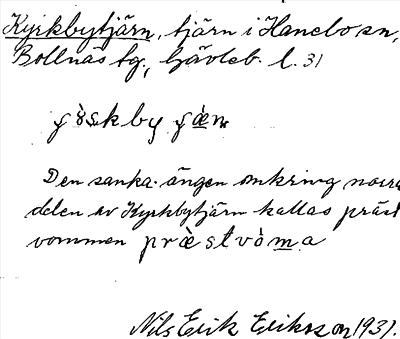 Kyrkbytjärn, tjärn i Hanebo sn,
Bollnäs tg., Gävleb. l. 31
Den sanka ängen omkring norra
delen av Kyrkbytjärn kallas präst
vommen præ̀stvòma
Nils Erik Eriksson 1931.